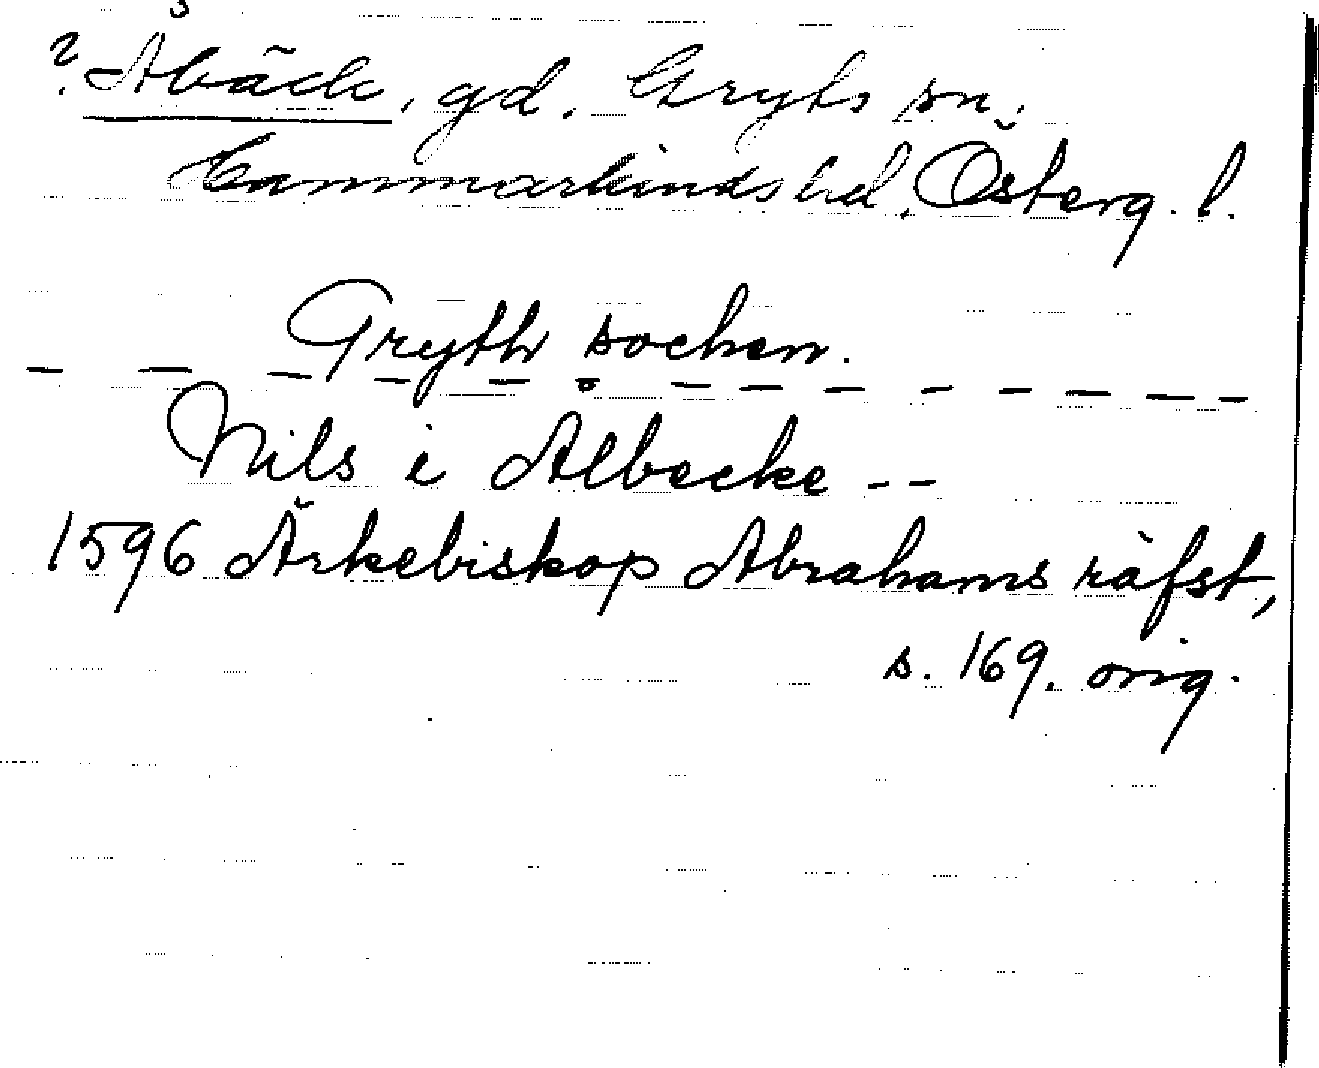 ? Åbäck, gd. Gryts sn.
Hammarkinds hd. Österg. l.
Gryth sochen.
Nils i Albecke --
1596 Ärkebiskop Abrahams räfst,
s. 169. orig.